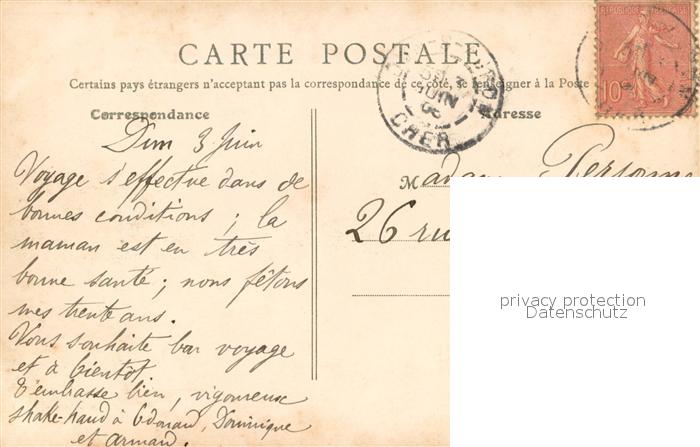 RÉPUBLIQUE FRANÇAISE
10
CARTE POSTALE
Certains pays étrangers n'acceptant pas la correspondance de ce côté, se renseigner à la Poste
JUIN
CHER
Correspondance
Adresse
Dim 3 Juin
Voyage s'effectue dans de
bonnes conditions ; la
maman est en très
bonne santé ; nous fêtons
mes trente ans.
Vous souhaite bon voyage
et à bientôt.
T'embrasse bien, vigoureux
shake-hand à Edouard, Dominique
et Armand.
Madame Personne
26 rue
privacy protection
Datenschutz